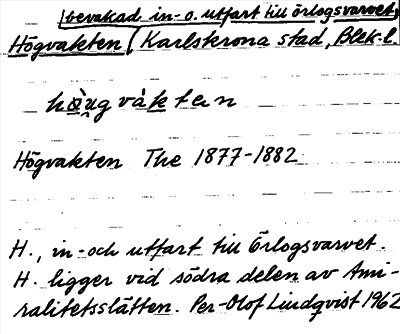 bevakad in- o. utfart till örlogsvarvet,
Högvakten (Karlskrona stad, Blek. l.
hö̀u̯gvàktan
Högvakten The 1877-1882
H., in- och utfart till Örlogsvarvet.
H. ligger vid södra delen av Ami-
ralitetsslätten. Per-Olof Lindqvist 1962